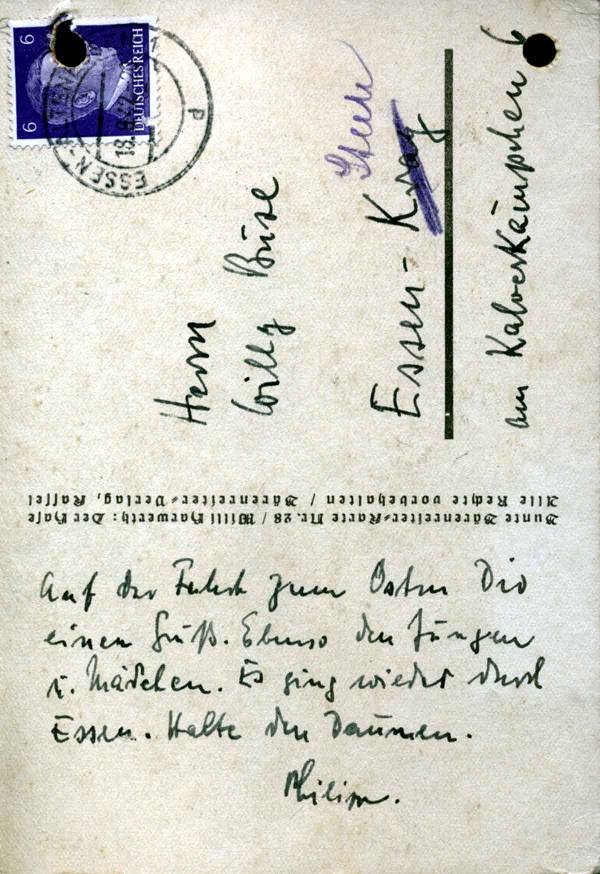 6 6
DEUTSCHES REICH
ESSEN-
d
Herrn
Willy Büse
Essen-Kray
Steele
am Kalverkämpchen 6
Bunte Bärenreiter-Karte Nr. 28 / Willi Harwerth: Der Hase
Alle Rechte vorbehalten / Bärenreiter-Verlag, Kassel
Auf der Fahrt zum Osten Dir
einen Gruß. Ebenso den Jungen
u. Mädchen. Es ging wieder durch
Essen. Halte den Daumen.
Philipp.